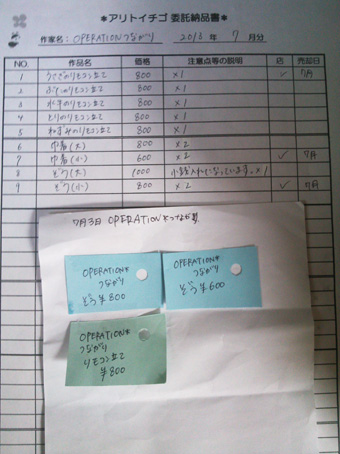 *アリトイチゴ 委託納品書*
作家名: OPERATIONつながり 2018年 7月分
NO. 作品名 価格 注意点等の説明 店 売却日
1 うさぎのリモコン立て 800 ×1 ✓ 7月
2 ぶたのリモコン立て 800 ×1
3 水牛のリモコン立て 800 ×1
4 とりのリモコン立て 800 ×1
5 ねずみのリモコン立て 800 ×1
6 巾着(大) 800 ×2
7 巾着(小) 600 ×2 ✓ 7月
8 ぞう(大) 1000 小銭入れになっています。×1
9 ぞう(小) 800 ×2 ✓ 7月
7月3日 OPERATION*つながり
OPERATION*
つながり
ぞう ¥800
OPERATION*
つながり
ぞう ¥600
OPERATION*
つながり
リモコン立て
¥800